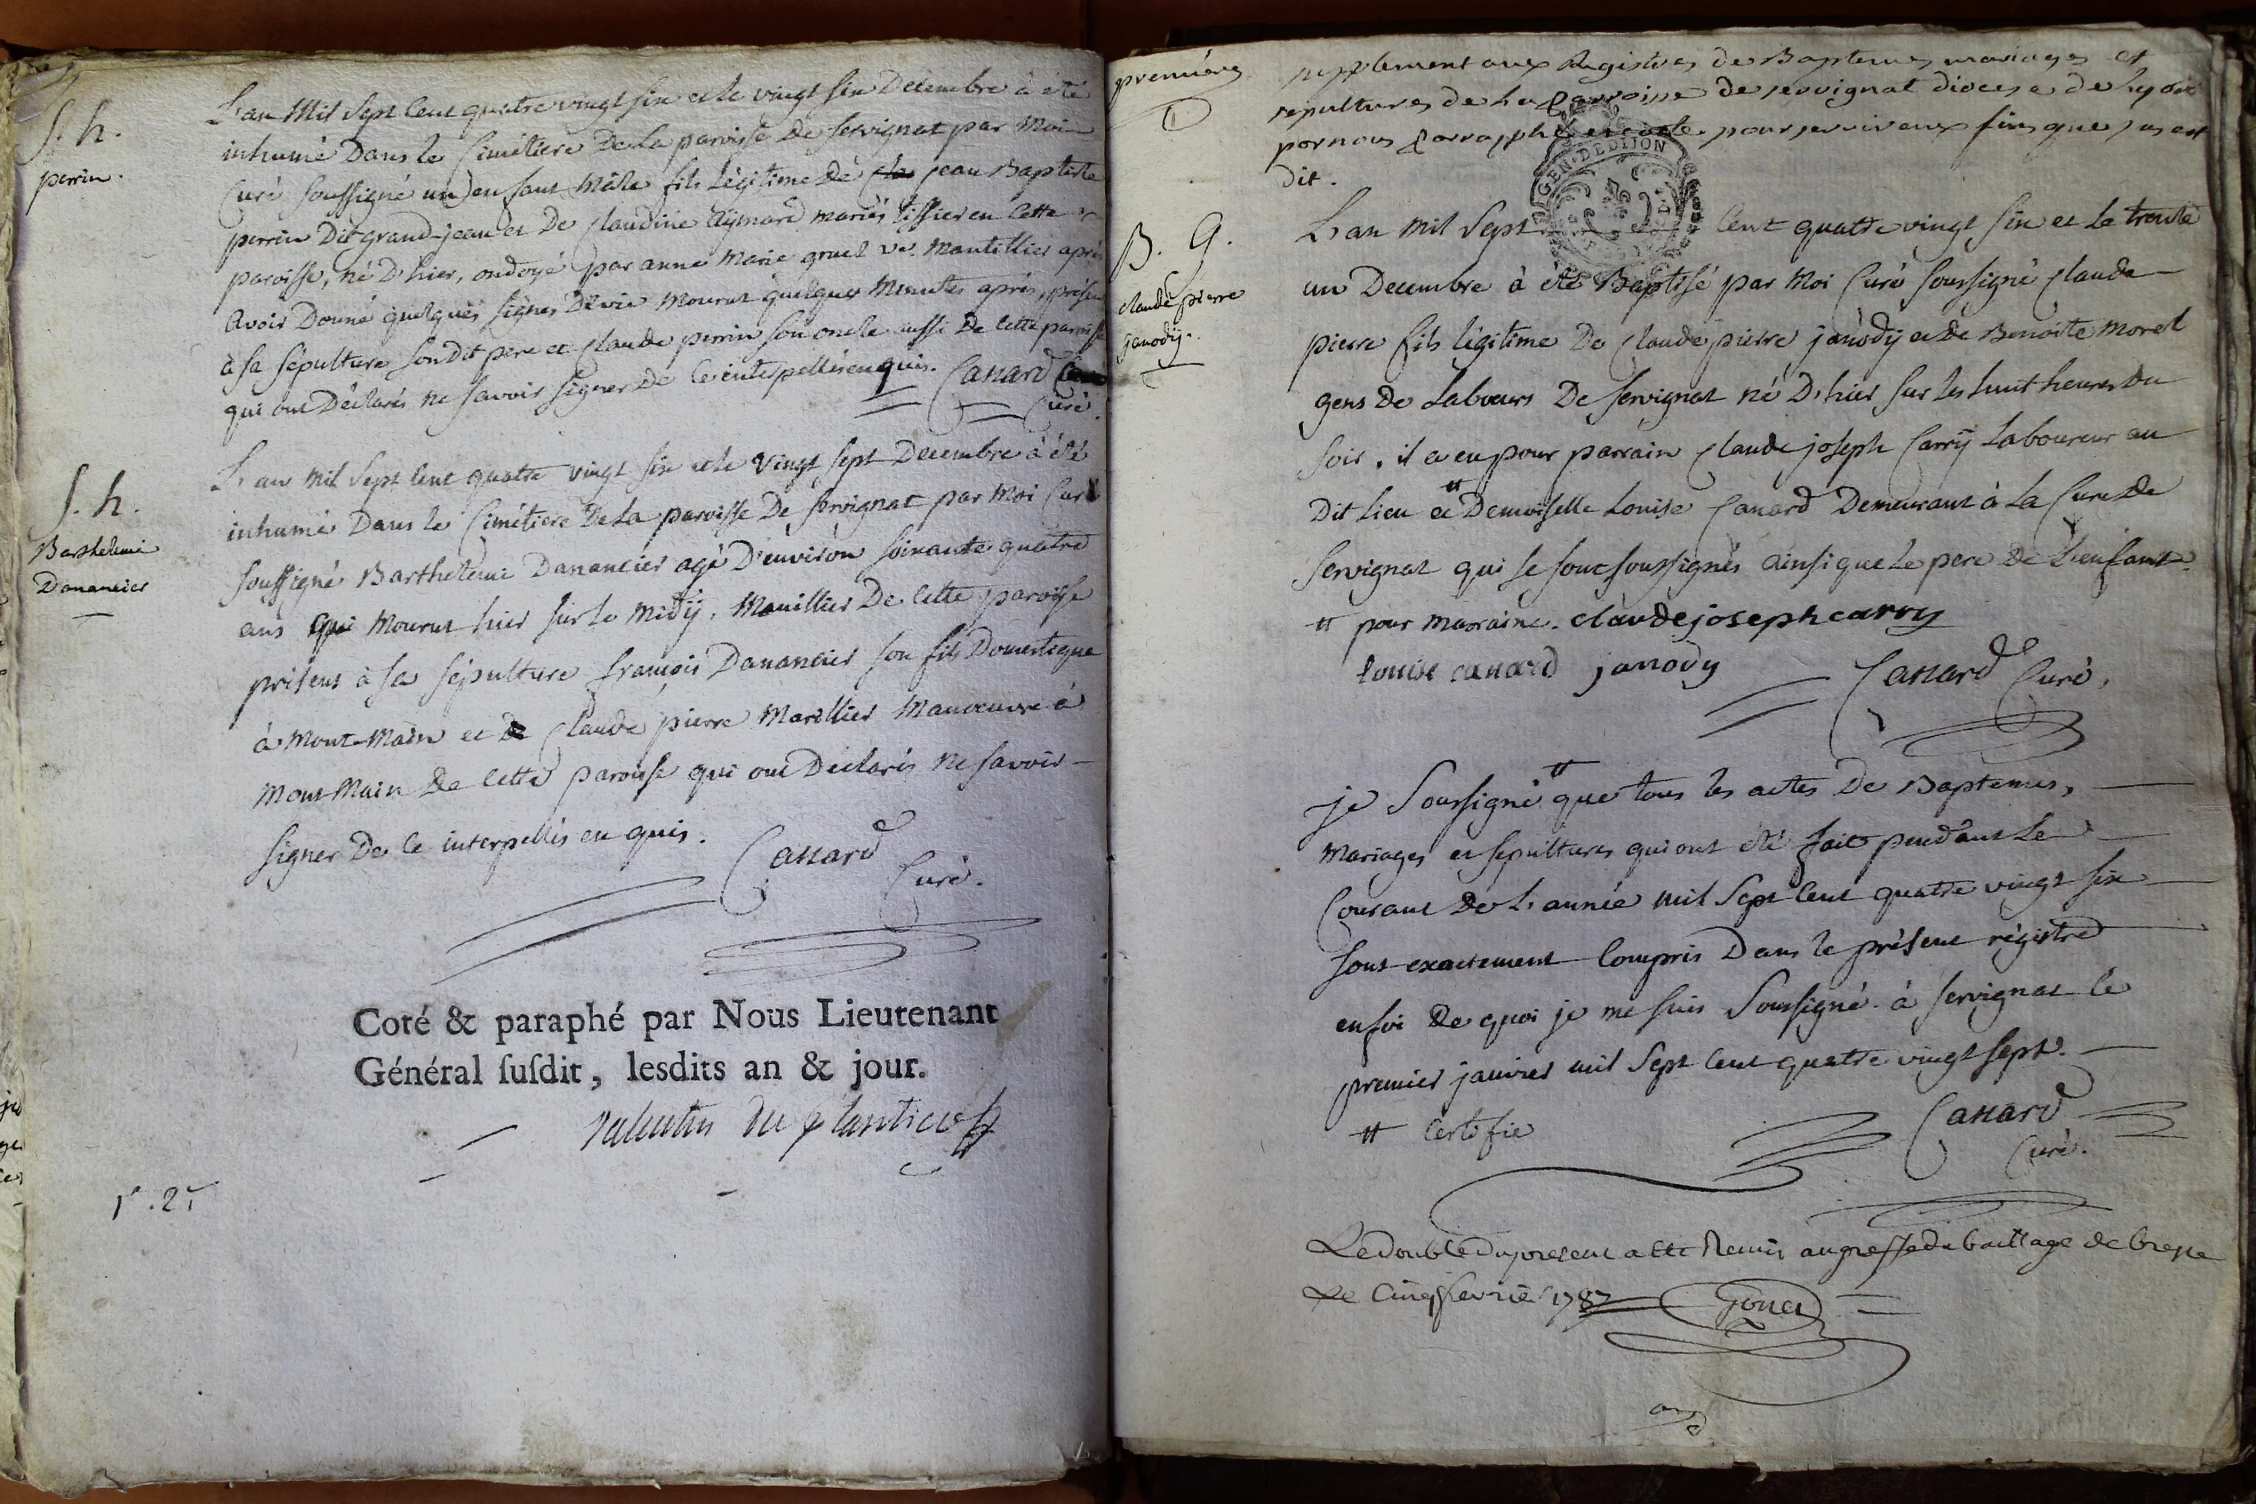 S. h.
perrin.
L'an Mil Sept Cent quatre vingt six et le vingt six Decembre à été
inhumé Dans le Cimétiere De La paroisse De Servignat par Moi
Curé soussigné un enfant Mâle fils légitime De Jean Baptiste
perrin Dit grand-jean et De Claudine Aymard mariés tissier en Cette
paroisse, né D'hier, ondoyé par anne Marie gruel ve. Mantillier après
Avoir Donné quelques signes De vie Mourut quelques Minutes après, présens
à sa sépulture son Dit pere et Claude perrin son oncle aussi De Cette paroisse
qui ont Déclarés ne savoir signer De Ce interpellés enquis. Canard
Curé.
S. h.
Barthelemi
Danancier
L'an Mil Sept Cent quatre vingt six et le vingt sept Decembre à été
inhumé Dans le Cimétiere De La paroisse De Servignat par Moi Curé
soussigné Barthelemi Danancier agé D'environ soixante quatre
ans qui Mourut hier sur le Midÿ, De Cette paroisse
présens à sa sépulture françois Danancier son fils Domestique
à Mont-Main et Claude pierre Marillier Manoeuvre à
Mont-Main De Cette paroisse qui ont Déclarés Ne savoir
signer De Ce interpellés en quis.
Canard
Curé.
Coté & paraphé par Nous Lieutenant
Général ſuſdit, lesdits an & jour.
Valentin du plantier
premiere
1
supplement aux Registres de Baptemes mariages et
sepultures de La parroisse de servignat diocese de Lyon
par nous parapphé et cotte pour servir aux fins que sus est
dit.
GEN. DE DIJON
B. G.
Claude pierre
janodÿ.
L'an Mil Sept Cent quatre vingt six et Le trente
un Decembre à été Baptisé par Moi Curé soussigné Claude
pierre fils légitime De Claude pierre janodÿ et De Benoite Morel
gens de Labeurs De Servignat né D'hier sur les huit heures Du
Soir. il a eu pour parrain Claude joseph Carrÿ Laboureur au
Dit Lieu et # Demoiselle Louise Canard Demeurant à La Cure De
Servignat qui se sont soussignés ainsi que Le pere De L'enfant.
# pour Maraine. claude joseph carry
louise canard janody
Canard Curé.
je Soussigné # que tous les actes De Baptemes,
Mariages et sepultures qui ont été fait pendant Le
Courant De L'année Mil Sept Cent quatre vingt six
sont exactement Compris Dans le présent régistre
en foi De quoi je me suis Soussigné à Servignat le
premier janvier mil Sept Cent quatre vingt sept.
# Certifie
Canard
Curé.
Le double du present a été Remis au greffe du bailliage de bresse
Le Cinq fevrier 1787